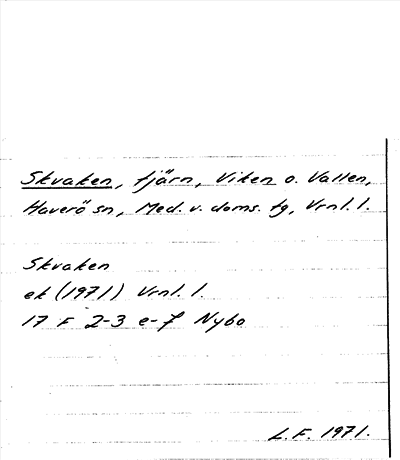 Skvaken, tjärn, Viken o. Vallen,
Haverö sn, Med. v. doms. tg, Vrnl. l.
Skvaken
ek (1971) Vrnl. l.
17 F 2-3 e-f Nybo
L.F. 1971.